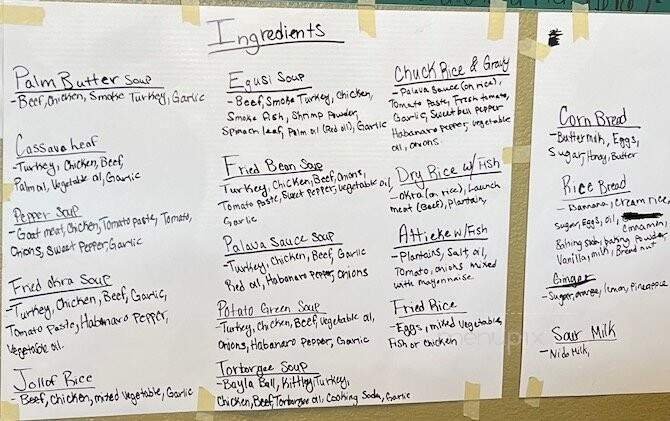 Ingredients
Palm Butter Soup
-Beef, Chicken, Smoke Turkey, Garlic
Cassava Leaf
-Turkey, Chicken, Beef,
Palm oil, Vegetable oil, Garlic
Pepper Soup
-Goat meat, Chicken, Tomato paste, Tomato,
Onions, Sweet Pepper, Garlic
Fried Okra Soup
-Turkey, Chicken, Beef, Garlic,
Tomato Paste, Habanaro Pepper,
Vegetable oil.
Jollof Rice
-Beef, Chicken, mixed Vegetable, Garlic
Egusi Soup
-Beef, Smoke Turkey, Chicken,
Smoke Fish, Shrimp Powder,
Spinach leaf, Palm oil (Red oil), Garlic
Fried Bean Soup
Turkey, Chicken, Beef, Onions,
Tomato Paste, Sweet Pepper, Vegetable oil,
Garlic
Palava Sauce Soup
-Turkey, Chicken, Beef, Garlic
Red oil, Habanaro Pepper, Onions
Potato Green Soup
-Turkey, Chicken, Beef, Vegetable oil,
Onions, Habanaro Pepper, Garlic
Torborgee Soup
-Bayla Ball, Kittley, Turkey,
Chicken, Beef, Torborgee oil, Cooking Soda, Garlic
Chuck Rice & Gravy
-Palava Sauce (on rice),
Tomato Paste, Fresh tomato,
Garlic, Sweet bell pepper
Habanaro Pepper, Vegetable
oil, Onions
Dry Rice w/ Fish
-Okra (on rice), Launch
meat (Beef), Plantain,
Attieke w/ Fish
-Plantains, Salt, oil,
Tomato, onions mixed
with mayonnaise
Fried Rice
-Eggs, mixed Vegetable,
Fish or chicken
Corn Bread
-Buttermilk, Eggs,
Sugar, Honey, Butter
Rice Bread
-Bannana, Cream rice,
Sugar, Eggs, oil,
Cinnamin,
Baking soda, baking powder
Vanilla, milk, Bread nut
Ginger
-Sugar, orange, lemon, Pineapple
Sour Milk
-Nido Milk,
menupix